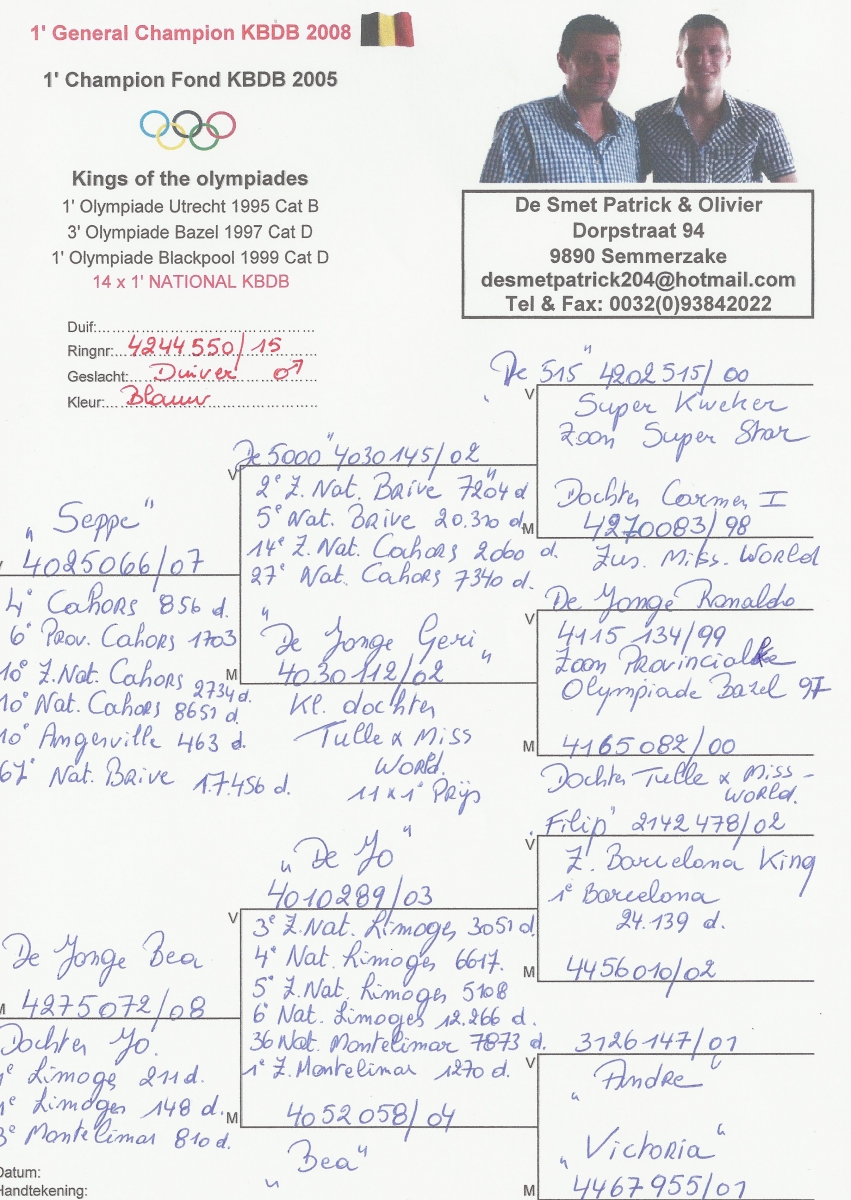 1' General Champion KBDB 2008
1' Champion Fond KBDB 2005
Kings of the olympiades
1' Olympiade Utrecht 1995 Cat B
3' Olympiade Bazel 1997 Cat D
1' Olympiade Blackpool 1999 Cat D
14 x 1' NATIONAL KBDB
De Smet Patrick & Olivier
Dorpstraat 94
9890 Semmerzake
desmetpatrick204@hotmail.com
Tel & Fax: 0032(0)93842022
Duif:
Ringnr: 4244550/15
Geslacht: Duiver ♂
Kleur: Blauw
"Seppe"
4025066/07
4° Cahors 856 d.
6° Prov. Cahors 1703
10° Z.Nat. Cahors 2734 d.
10° Nat. Cahors 8651 d.
10° Angerville 463 d.
67° Nat. Brive 17.456 d.
De Jonge Bea
M 4275072/08
Dochter Jo.
1e Limoges 211 d.
1e Limoges 148 d.
3e Montelimar 810 d.
Datum:
Handtekening:
De 5000" 4030145/02
V
2e Z. Nat. Brive 7204 d
5e Nat. Brive 20.310 d
14e Z. Nat. Cahors 2060 d.
27e Nat. Cahors 7340 d.
"De Jonge Geri"
M 4030112/02
Kl. dochter
Tulle x Miss
World.
11 x 1° Prijs
"De Jo"
4010289/03
V
3e Z.Nat. Limoges 3051 d.
4e Nat. Limoges 6617.
5e Z.Nat. Limoges 5108
6e Nat. Limoges 12.266 d.
36 Nat. Montelimar 7873 d.
1e Z. Montelimar 1270 d.
M 4052058/04
"Bea"
De 515" 4202515/00
V
Super Kweker
Zoon Super Star
Dochter Carmen I
M 4270083/98
Zus. Miss. World
De Jonge Ronaldo
V
4115134/99
Zoon Provinciale
Olympiade Bazel 97
M 4165082/00
Dochter Tulle x Miss-
World.
Filip" 2142478/02
V
Z. Barcelona King
1e Barcelona
24.139 d.
M 4456010/02
3126147/01
V
"Andre"
"Victoria"
M 4467955/01